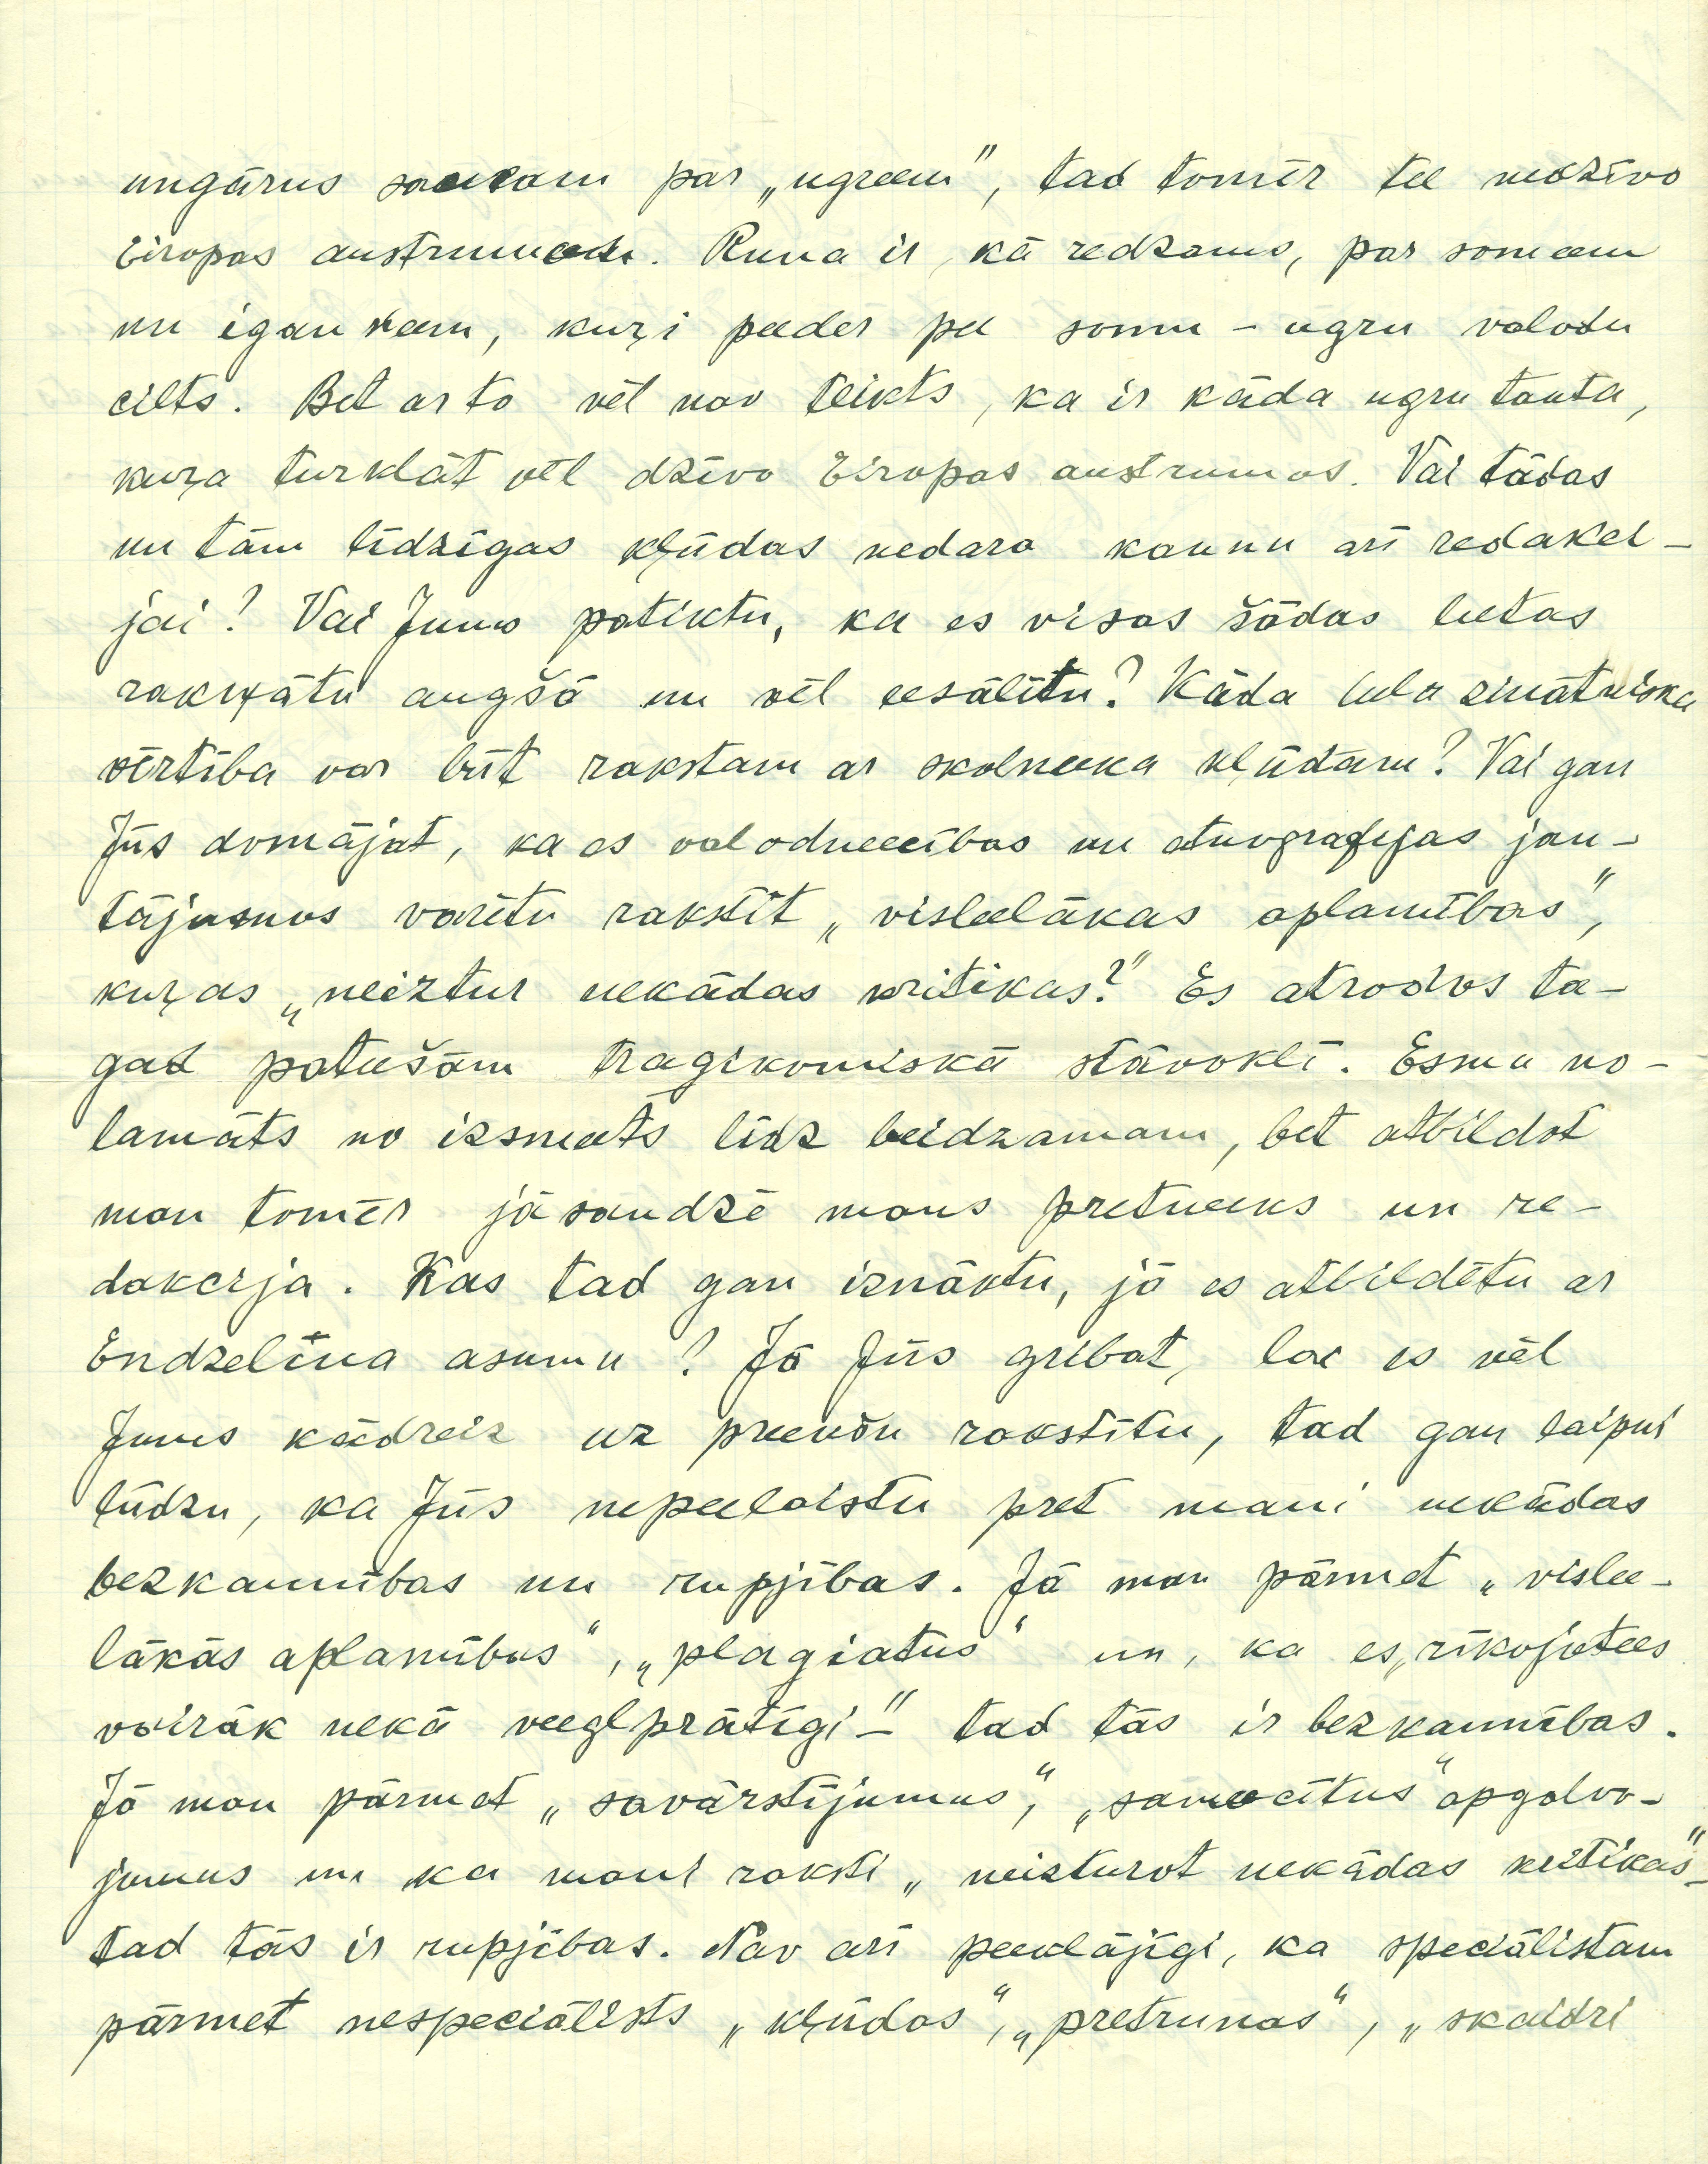 ungārus saucam par „ugreem", tad tomēr tee nedzīvo
Eiropas austrumos. Runa ir, kā redzams, par someem
un igauņeem, kuŗi peeder pee somu - ugru valodu
cilts. Bet ar to vēl nav teikts, ka ir kāda ugru tauta,
kuŗa turklāt vēl dzīvo Eiropas austrumos. Vai tādas
un tām līdzīgas kļūdas nedara kaunu arī redakci-
jai? Vai Jums patiktu, ka es visas šādas leetas
rakņātu augšā un vēl eesālītu? Kāda liela zinātniska
vērtība var būt rakstam ar skolneeka kļūdām? Vai gan
Jūs domājat, ka es valodneecības un etnografijas jau-
tājumos varētu rakstīt „visleelākas aplamības",
kuŗas „neiztur nekādas kritikas?" Es atrodos ta-
gad pateešām tragikomiskā stāvoklī. Esmu no-
lamāts no izsmeets līdz beidzamam, bet atbildot
man tomēr jāsaudzē mans pretneeks un re-
dakcija. Kas tad gan iznāktu, ja es atbildētu ar
Endzelīna asumu? Ja Jūs gribat, lai es vēl
Jums kādreiz uz preekšu rakstītu, tad gan laipni
lūdzu, ka Jūs nepeelaistu pret mani nekādas
bezkaunības un rupjības. Ja man pārmet „vislee-
lākās aplamības", „plagiatus" un, ka es „rīkojotees
vairāk nekā veeglprātīgi" – tad tās ir bezkaunības.
Ja man pārmet „savārstījumus", „sameocītus" apgalvo-
jumus un ka mani raksti „neizturot nekādas kritikas" –
tad tās ir rupjības. Nav arī peeklājīgi, ka speciālistam
pārmet nespeciālists „kļūdas", „pretrunas", „skaidri